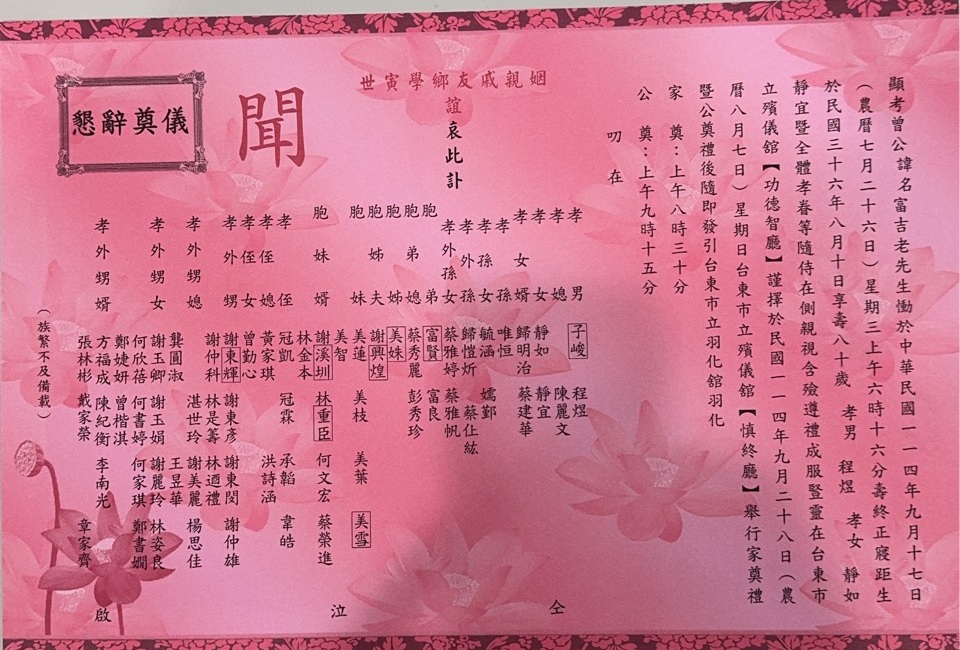 顯考曾公諱名富吉老先生慟於中華民國一一四年九月十七日
（農曆七月二十六日）星期三上午六時十六分壽終正寢距生
於民國三十六年八月十日享壽八十歲　孝男　程煜　孝女　靜如
靜宜暨全體孝眷等隨侍在側親視含殮遵禮成服暨靈在台東市
立殯儀館【功德智廳】謹擇於民國一一四年九月二十八日（農
曆八月七日）星期日台東市立殯儀館【慎終廳】舉行家奠禮
暨公奠禮後隨即發引台東市立羽化館羽化
家　奠：上午八時三十分
公　奠：上午九時十五分
叨　在
姻親戚友鄉學寅世
誼
哀此訃
聞
懇辭奠儀
孝男　子峻　程煜
孝媳　陳麗文
孝女　靜如　靜宜
孝女婿　歸明治　蔡建華
孝孫　唯恒
孝孫女　毓涵　嬬鄞
孝外孫　歸愷炘　蔡仩紘
孝外孫女　蔡雅婷　蔡雅帆
胞弟　富賢　富良
胞弟媳　蔡秀麗　彭秀珍
胞姊　美姝
胞姊夫　謝興煌
胞妹　美蓮　美枝　美葉　美雪
美智
胞妹婿　謝溪圳　林重臣　何文宏　蔡榮進
林金本
孝侄　冠凱　冠霖　承韜　韋皓
孝侄媳　黃家琪　洪詩涵
孝侄女　曾勤心
孝外甥　謝東輝　謝東彥　謝東閔　謝仲雄
謝仲科　林是籌　林迺禮
孝外甥媳　湛世玲　謝美麗　楊思佳
龔圓淑　王昱華
孝外甥女　謝玉卿　謝玉娟　謝麗玲　林姿良
何欣蓓　何書婷　何家琪　鄭書嫺
鄭婕妍　曾楷淇
孝外甥婿　方福成　陳紀衡　李南光
張林彬　戴家榮　章家齊
（族繁不及備載）
仝
泣
啟